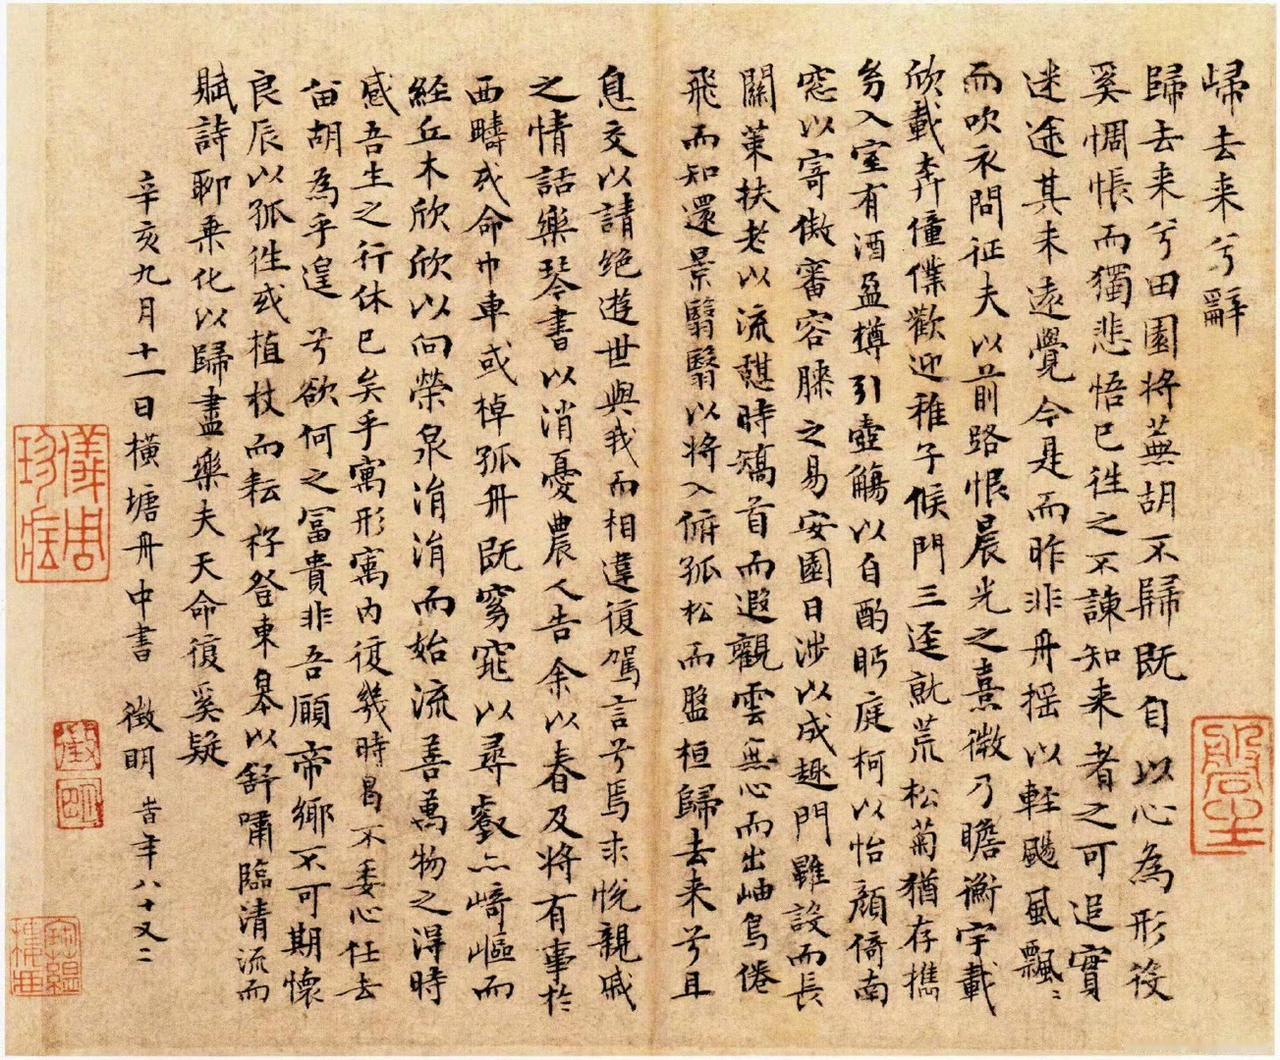 歸去来兮辭
歸去来兮田園将蕪胡不歸既自以心為形役
奚惆悵而獨悲悟已往之不諫知来者之可追實
迷途其未遠覺今是而昨非舟揺以軽颺風飄〻
而吹衣問征夫以前路恨晨光之熹微乃瞻衡宇載
欣載奔僮僕歡迎稚子候門三逕就荒松菊猶存攜
幼入室有酒盈樽引壺觴以自酌眄庭柯以怡顔倚南
窓以寄傲審容膝之易安園日渉以成趣門雖設而長
關策扶老以流憩時矯首而遐觀雲無心而出岫鳥倦
飛而知還景翳翳以将入俯孤松而盤桓歸去来兮且
息交以請絶遊世與我而相違復駕言兮焉求悅親戚
之情話樂琴書以消憂農人告余以春及将有事於
西疇或命巾車或棹孤舟既窈窕以尋壑亦崎嶇而
経丘木欣欣以向榮泉涓涓而始流善萬物之得時
感吾生之行休已矣乎寓形寓内復幾時曷不委心任去
留胡為乎遑兮欲何之冨貴非吾願帝鄉不可期懷
良辰以孤往或植杖而耘耔登東皋以舒嘯臨清流而
賦詩聊乗化以歸盡樂夫天命復奚疑
辛亥九月十一日橫塘舟中書 徵明 旹年八十又二
徵明